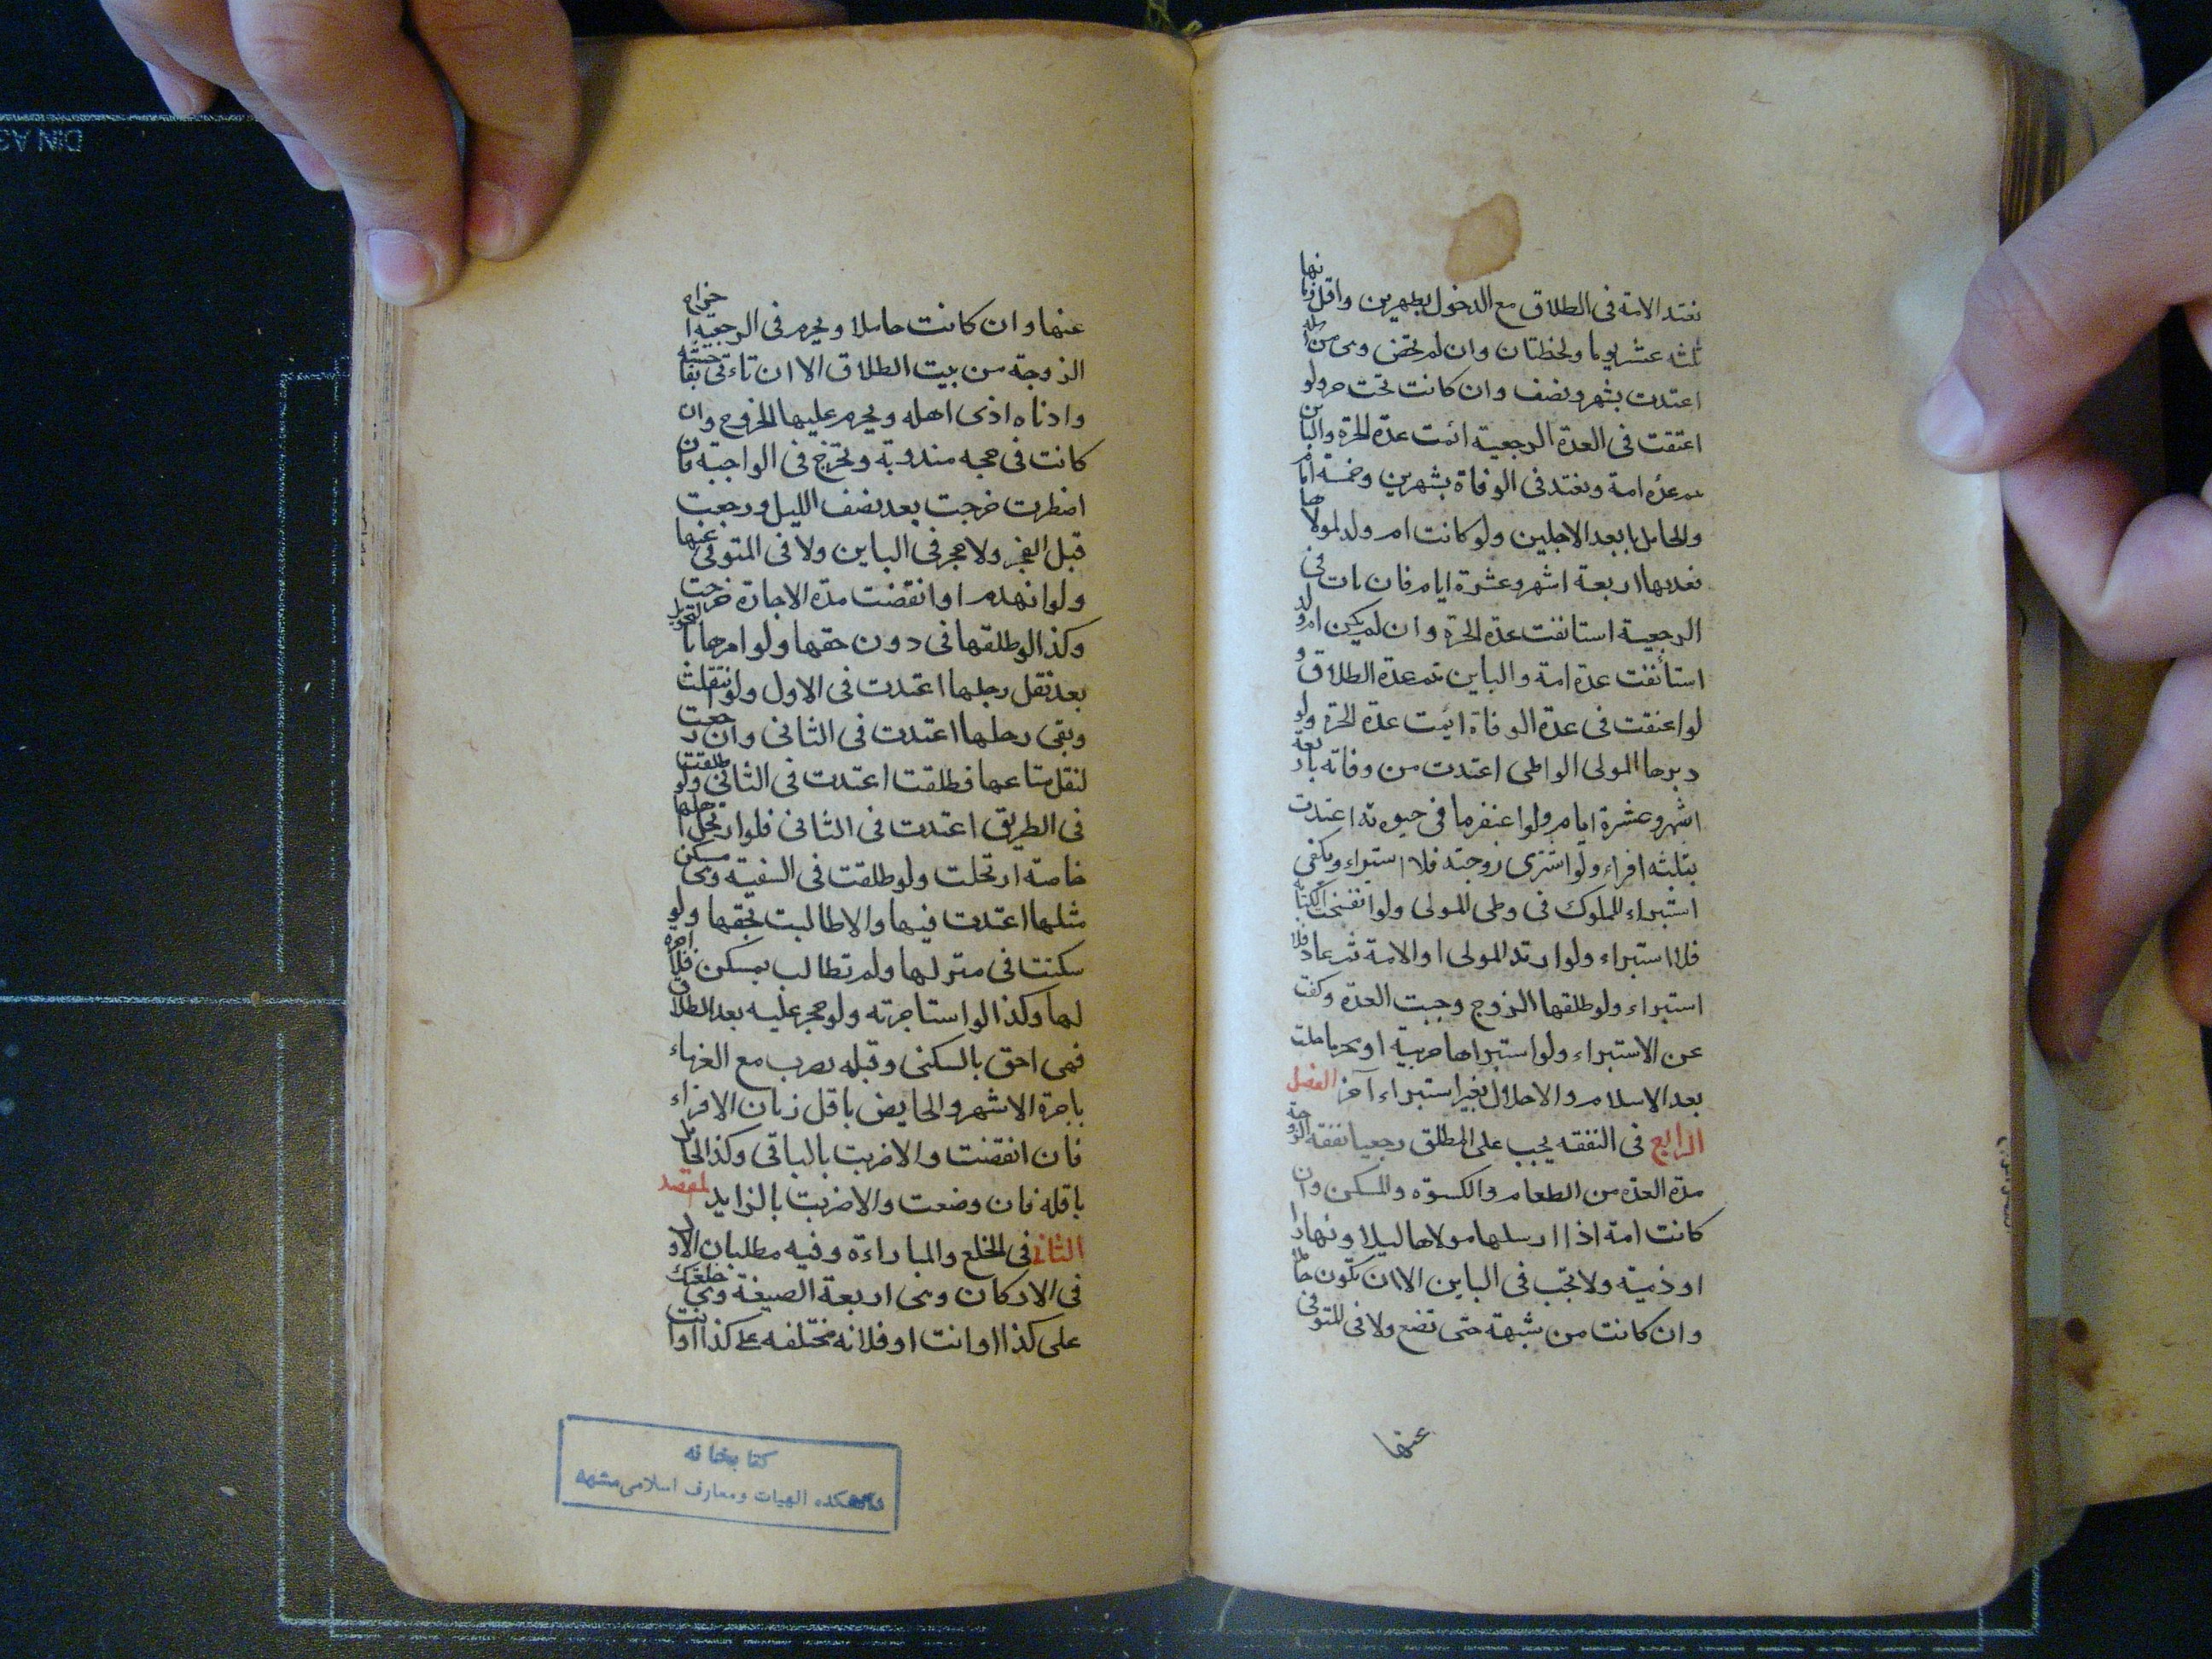 تعتد الامة فى الطلاق مع الدخول بطهرين واقل زمانها
ثلثه عشر يوما ولحظتان وان لم تحض وهى من اهله
اعتدت بشهر ونصف وان كانت تحت حر ولو
اعتقت فى العدة الرجعية اتمت عدة الحرة والباين
عدة امة وتعتد فى الوفاة بشهرين وخمسة ايام
والحامل بابعد الاجلين ولو كانت ام ولد لمولاها
فعدتها اربعة اشهر وعشرة ايام فان مات فى
الرجعية استانفت عدة الحرة وان لم يكن ام ولد
استأنفت عدة امة والباين تتم عدة الطلاق و
لو اعتقت فى عدة الوفاة اتمت عدة الحرة ولو
دبرها المولى الواطى اعتدت من وفاته باربعة
اشهر وعشرة ايام ولو اعتقها فى حيوته اعتدت
بثلثه اقراء ولو اشترى زوجته فلا استبراء ويكفى
استبراء المملوك فى وطى المولى ولو انفسخت الكتابه
فلا استبراء ولو ارتد المولى او الامة ثم عاد فلا
استبراء ولو طلقها الزوج وجبت العدة وكفت
عن الاستبراء ولو استبراها حربية او محرما حلت
بعد الاسلام والاحلال بغير استبراء آخر الفصل
الرابع فى النفقه يجب على المطلق رجعيا نفقه الزوجة
مدة العدة من الطعام والكسوة والمسكن وان
كانت امة اذا ارسلها مولاها ليلا ونهارا
او ذمية ولا تجب فى الباين الا ان تكون حاملا
وان كانت من شبهة حتى تضع ولا فى المتوفى
عنها
عنها وان كانت حاملا ويحرم فى الرجعية اخراج
الزوجة من بيت الطلاق الا ان تاءتى بفاحشة
وادناه اذى اهله ويحرم عليها الخروج وان
كانت فى حجه مندوبة وتخرج فى الواجبة فان
اضطرت خرجت بعد نصف الليل ورجعت
قبل الفجر ولا حجر فى الباين ولا فى المتوفى عنها
ولو انهدم او انقضت مدة الاجارة خرجت
وكذا لو طلقها فى دون حقها ولو امرها بالتحويل
بعد نقل رحلها اعتدت فى الاول ولو انتقلت
وبقى رحلها اعتدت فى الثانى وان رجعت
لنقل متاعها فطلقت اعتدت فى الثانى ولو طلقت
فى الطريق اعتدت فى الثانى فلو ارتحل اهلها
خاصة ارتحلت ولو طلقت فى السفينه وهى مسكن
مثلها اعتدت فيها والا طالبت بحقها ولو
سكنت فى منزلها ولم تطالب بمسكن فلا اجرة
لها وكذا لو استاجرته ولو حجر عليه بعد الطلاق
فهى احق بالسكنى وقبله تضرب مع الغرماء
باجرة الاشهر والحايض باقل زمان الاقراء
فان انقضت والا ضربت بالباقى وكذا الحامل
باقله فان وضعت والا ضربت بالزايد المقصد
الثانى فى الخلع والمباراءة وفيه مطلبان الاول
فى الاركان وهى اربعة الصيغة وهى خلعتك
على كذا او انت او فلانه مختلعه على كذا او انت
كتابخانه
دانشكده الهيات ومعارف اسلامى مشهد
DIN A3